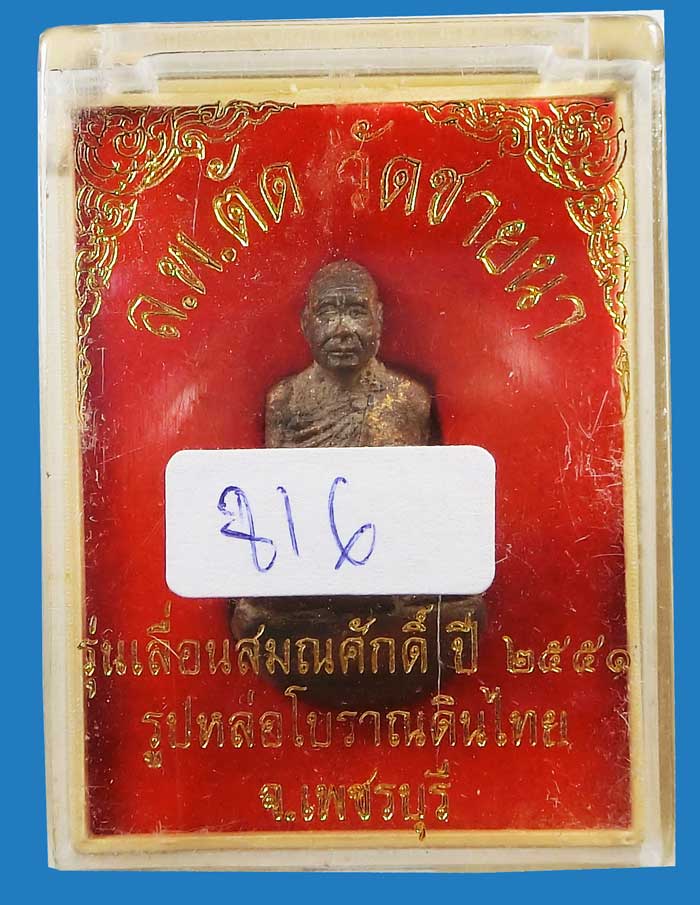 ล.พ.ตัด วัดชายนา
816
รุ่นเลื่อนสมณศักดิ์ ปี ๒๕๕๑
รูปหล่อโบราณดินไทย
จ.เพชรบุรี